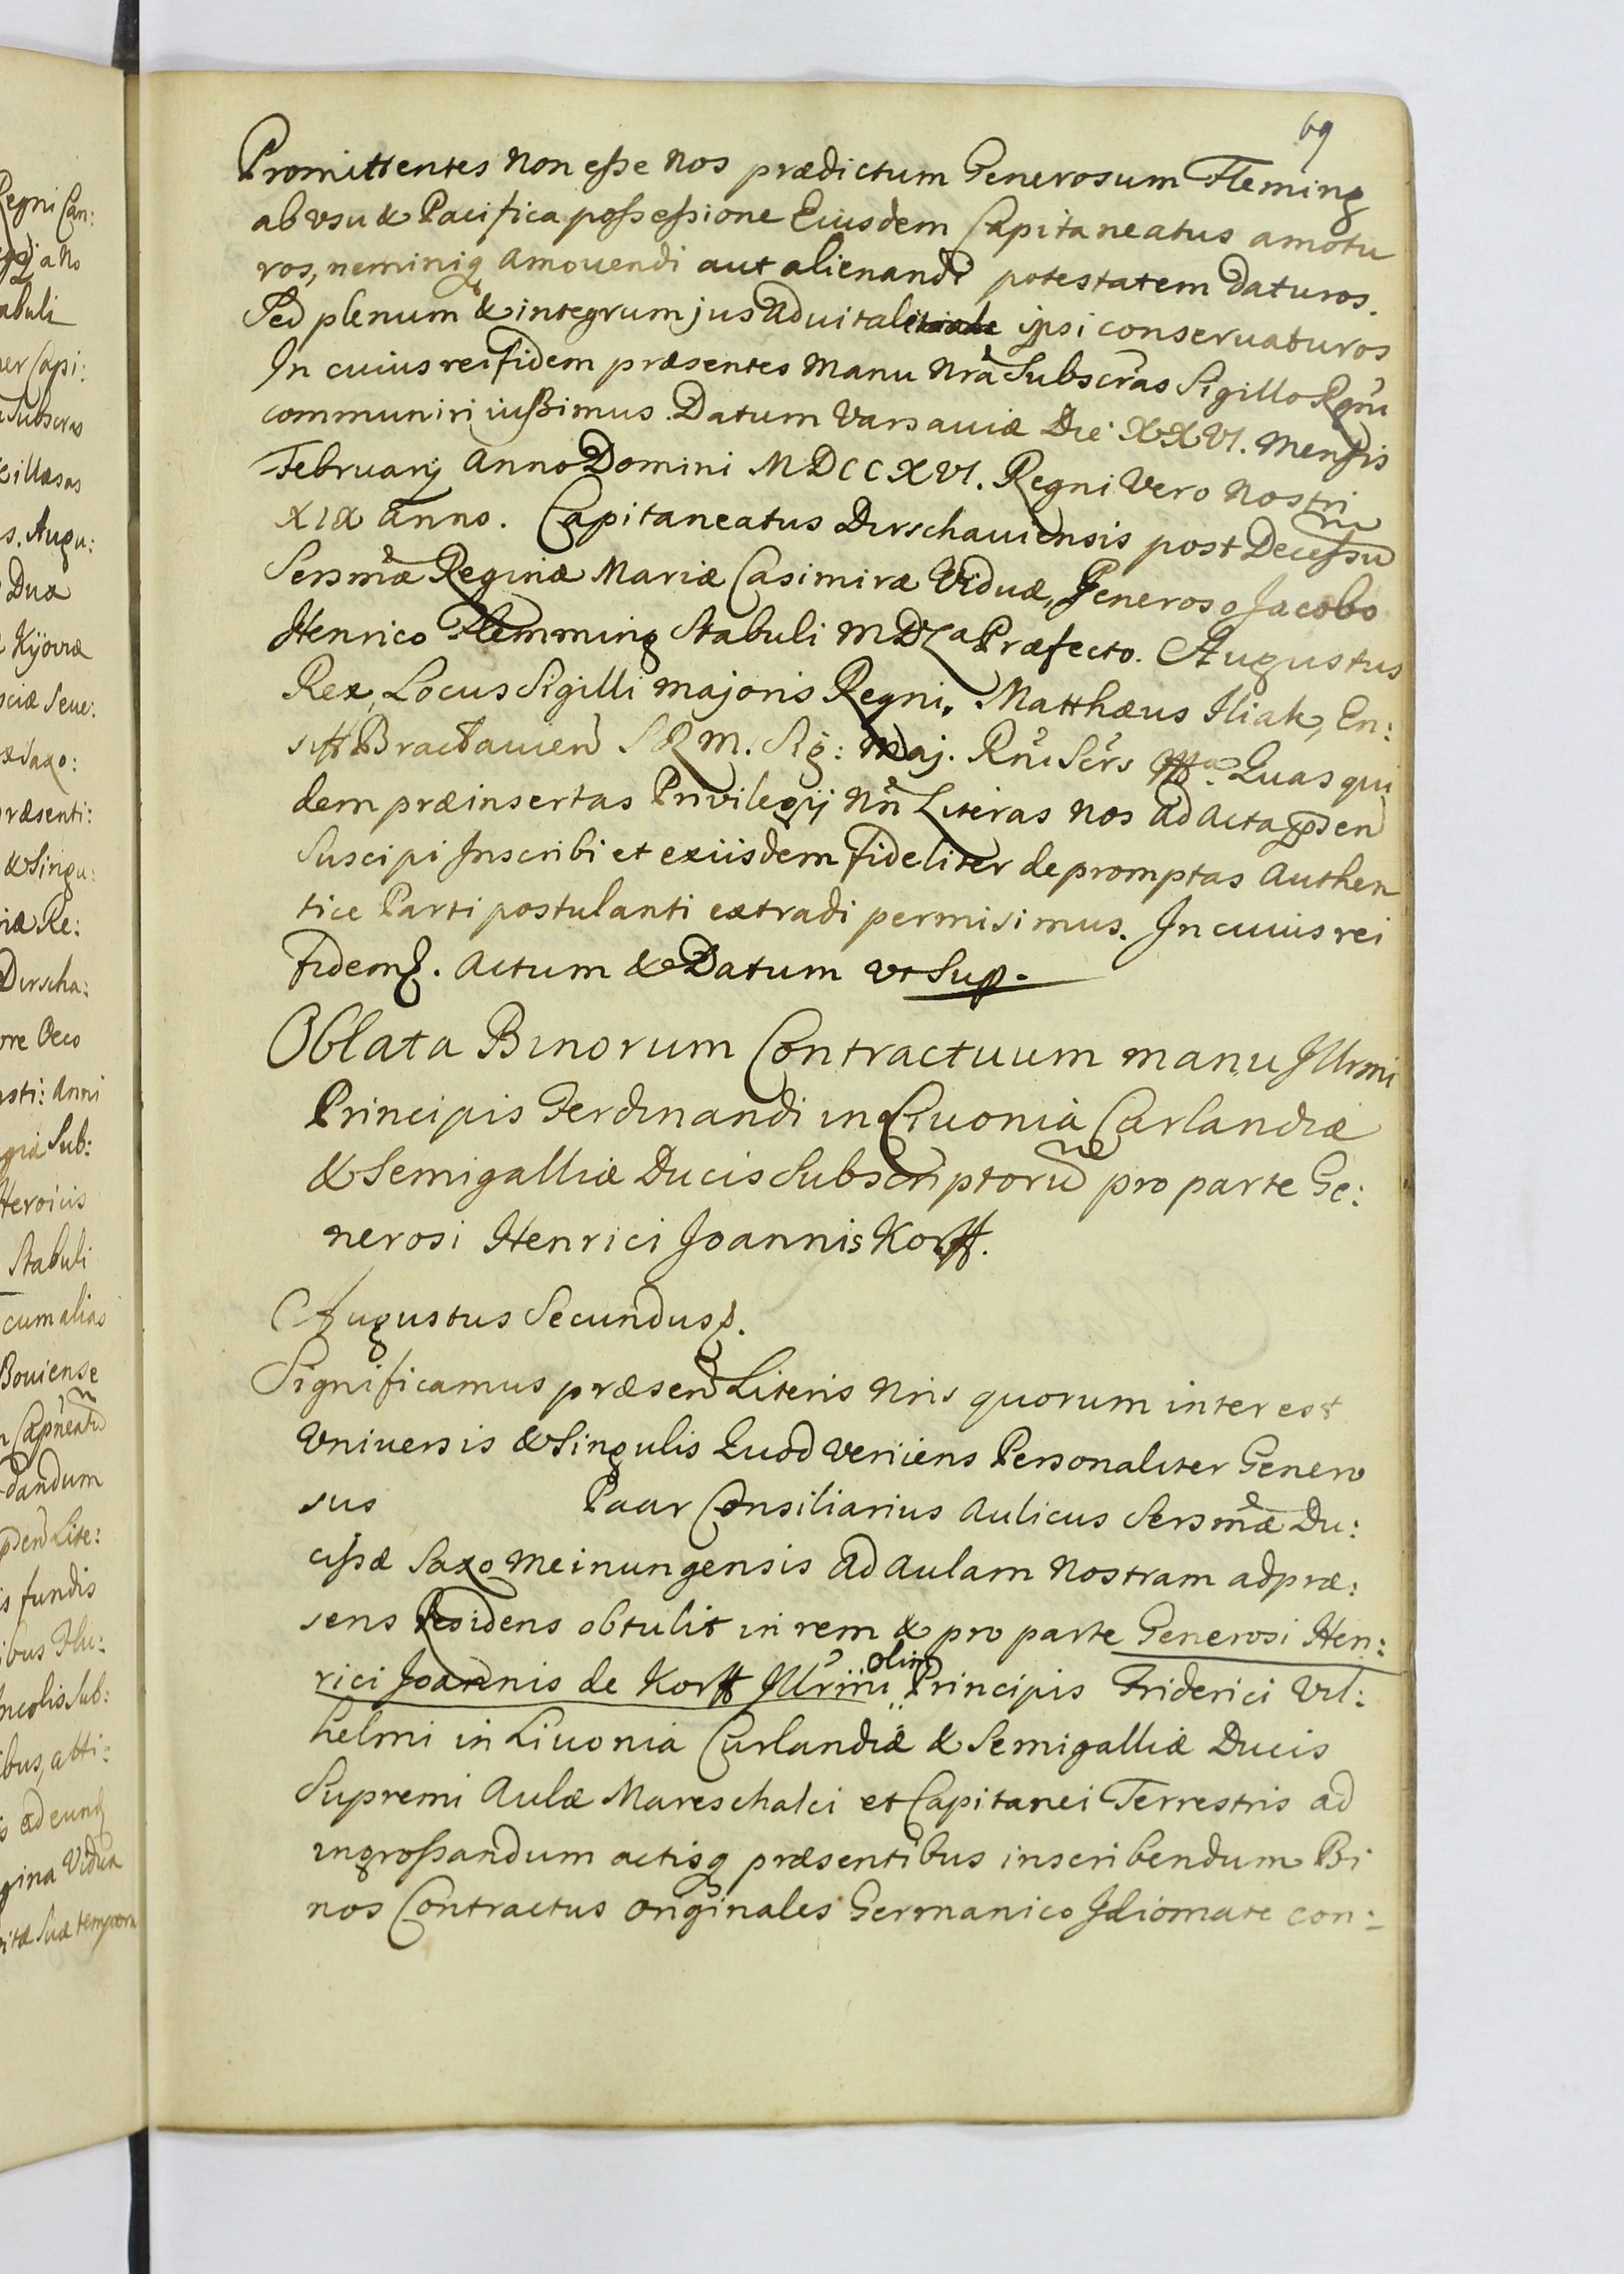 69
Promittentes Non eße Nos prædictum Generosum Fleming
ab vsu & Pacifica poßeßione Eiusdem Capitaneatus amotu
ros, neminiq amouendi aut alienandi potestatem daturos.
Sed plenum & integrum jus Aduitale ipsi conseruaturos
In cuius rei fidem præsentes Manu Nrã Subscras Sigillo Rgni
communiri iußimus. Datum Varsauiæ Die XXVI. Mensis
February Anno Domini MDCCXVI. Regni Vero Nostri
XIX Anno. Capitaneatus Dirschauiensis post Deceßu
Sersmæ Reginæ Mariæ Casimiræ Viduæ, Generoso Jacobo
Henrico Flemming Stabuli MDL Præfecto. Augustus
Rex, Locus Sigilli majoris Regni. Matthæus Iliak, En:
siff Braclauien S R M. Sig: Maj. Rni Scrs Quas qui
dem præinsertas Privilegij Nri Literas Nos Ad Acta psen
Suscipi Inscribi et exiisdem fideliter depromptas Authen
tice Parti postulanti extradi permisimus. In cuius rei
fidem. Actum & Datum vt Sup.
Oblata Binorum Contractuum manu Illrmi
Principis Ferdinandi in Liuonia Carlandiæ
& Semigalliæ Ducis Subscriptorũ pro parte Ge:
nerosi Henrici Joannis Korff.
Augustus Secundus.
Significamus præsen Literis Nris quorum interest
Vniuersis & Singulis Quod Veniens Personaliter Genero
sus Paar Consiliarius Aulicus Sersmæ Du:
cißæ Saxo Meinungensis Ad Aulam Nostram adpræ:
sens Residens obtulit in rem & pro parte Generosi Hen:
rici Joannis de Korff Illrmi olim Principis Friderici Vil:
helmi in Liuonia Curlandiæ & Semigalliæ Ducis
Supremi Aulæ Mareschalci et Capitanei Terrestris ad
ingroßandum actisq præsentibus inscribendum Bi
nos Contractus Originales Germanico Idiomate con: